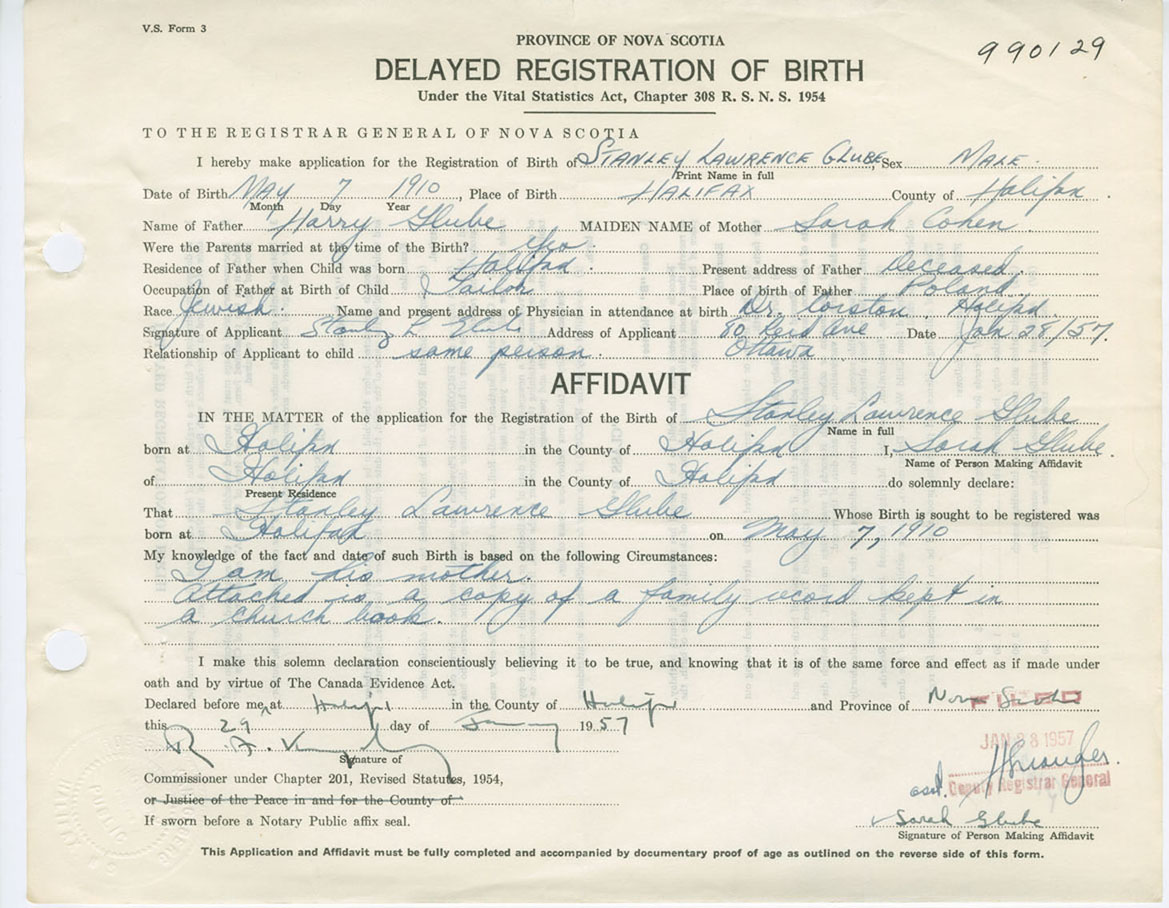 V.S. Form 3
PROVINCE OF NOVA SCOTIA
990129
DELAYED REGISTRATION OF BIRTH
Under the Vital Statistics Act, Chapter 308 R. S. N. S. 1954
TO THE REGISTRAR GENERAL OF NOVA SCOTIA
I hereby make application for the Registration of Birth of STANLEY LAWRENCE GLUBE Sex MALE.
Print Name in full
Date of Birth MAY 7 1910, Place of Birth HALIFAX County of Halifax.
Month Day Year
Name of Father Harry Glube MAIDEN NAME of Mother Sarah Cohen
Were the Parents married at the time of the Birth? Yes.
Residence of Father when Child was born Halifax. Present address of Father Deceased.
Occupation of Father at Birth of Child Tailor Place of birth of Father Poland
Race Jewish. Name and present address of Physician in attendance at birth Dr. Corston, Halifax.
Signature of Applicant Stanley L. Glube Address of Applicant 80 Reid Ave Date Jan 28/57.
Relationship of Applicant to child same person. Ottawa
AFFIDAVIT
IN THE MATTER of the application for the Registration of the Birth of Stanley Lawrence Glube
Name in full
born at Halifax in the County of Halifax I, Sarah Glube.
Name of Person Making Affidavit
of Halifax in the County of Halifax do solemnly declare:
Present Residence
That Stanley Lawrence Glube Whose Birth is sought to be registered was
born at Halifax on May 7, 1910
My knowledge of the fact and date of such Birth is based on the following Circumstances:
I am his mother.
Attached is a copy of a family record kept in
a church book.
I make this solemn declaration conscientiously believing it to be true, and knowing that it is of the same force and effect as if made under
oath and by virtue of The Canada Evidence Act.
Declared before me, at Halifax in the County of Halifax and Province of Nova Scotia
FILED
this 29 day of January 1957
JAN 28 1957
Signature of
Commissioner under Chapter 201, Revised Statutes, 1954,
asst. Deputy Registrar General
or Justice of the Peace in and for the County of
If sworn before a Notary Public affix seal.
Sarah Glube
Signature of Person Making Affidavit
This Application and Affidavit must be fully completed and accompanied by documentary proof of age as outlined on the reverse side of this form.